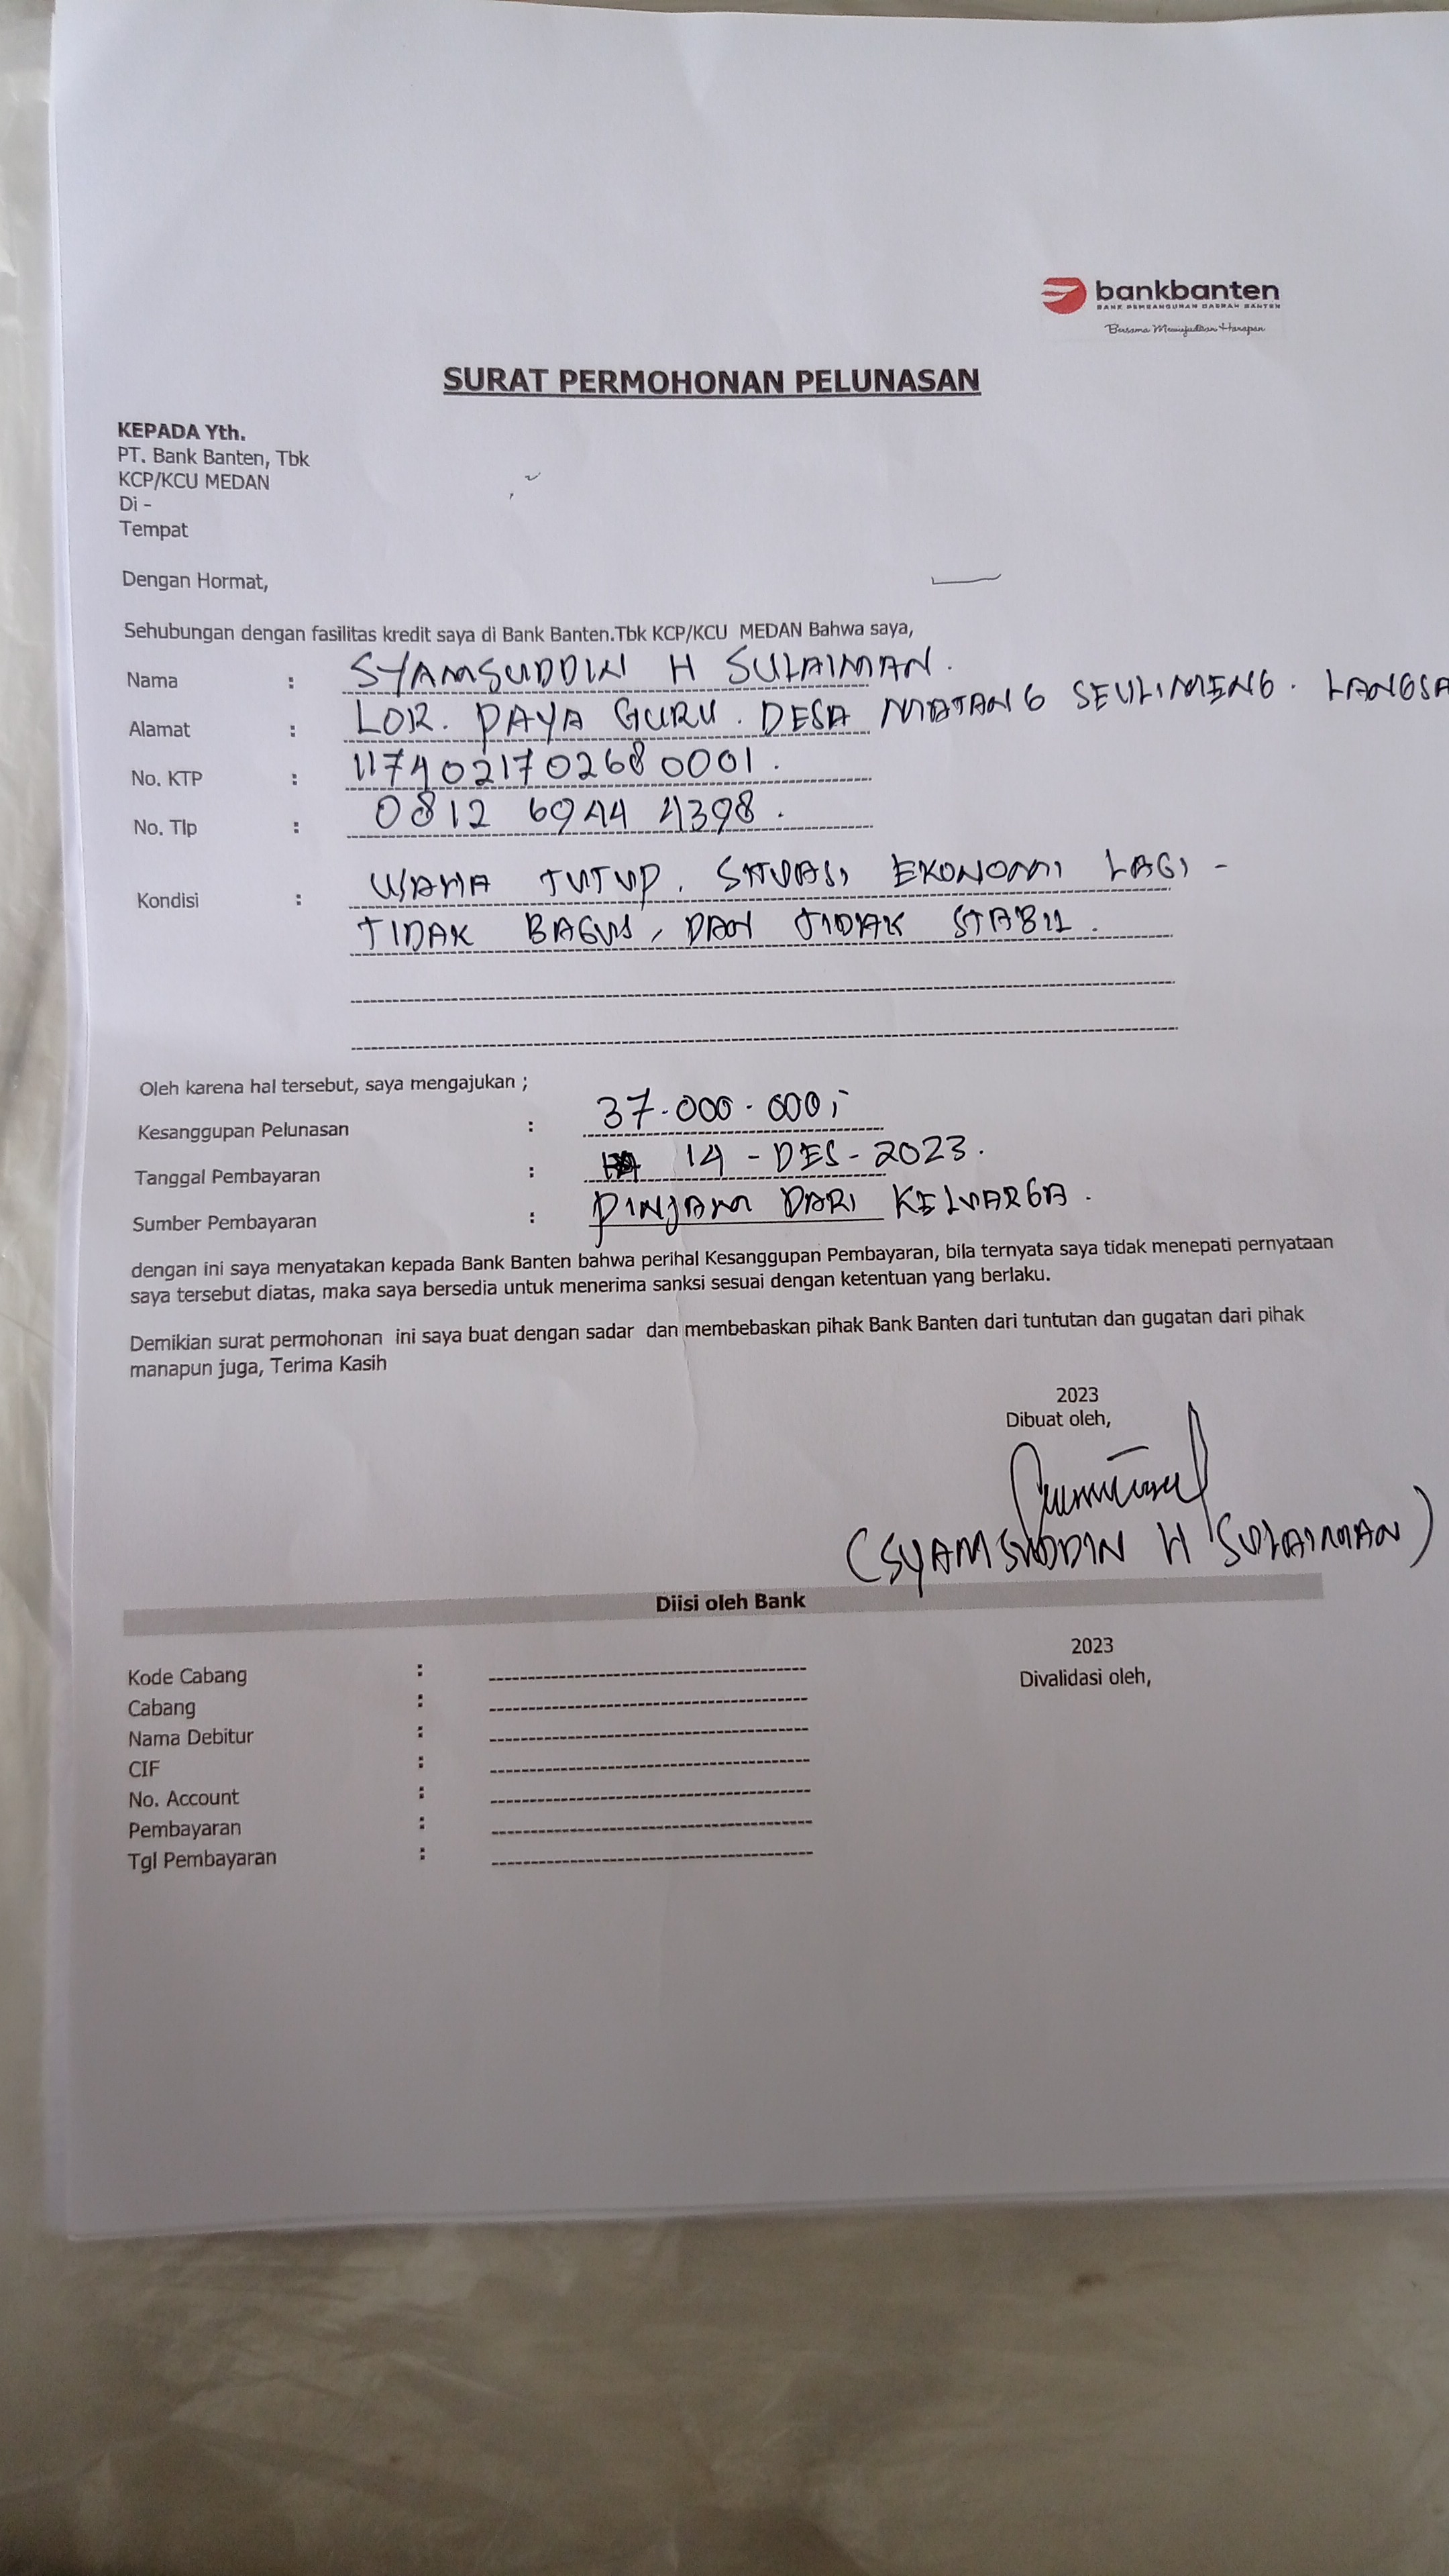 bankbanten
BANK PEMBANGUNAN DAERAH BANTEN
Bersama Mewujudkan Harapan
SURAT PERMOHONAN PELUNASAN
KEPADA Yth.
PT. Bank Banten, Tbk
KCP/KCU MEDAN
Di -
Tempat
Dengan Hormat,
Sehubungan dengan fasilitas kredit saya di Bank Banten.Tbk KCP/KCU MEDAN Bahwa saya,
Nama : SYAMSUDDIN H SULAIMAN.
Alamat : LOR. PAYA GURU. DESA MATANG SEULIMENG. LANGSA
No. KTP : 1174021702680001.
No. Tlp : 0812 6944 4398.
Kondisi : USAHA TUTUP. SITUASI EKONOMI LAGI -
TIDAK BAGUS, DAN TIDAK STABIL.
Oleh karena hal tersebut, saya mengajukan ;
Kesanggupan Pelunasan : 37.000.000,-
Tanggal Pembayaran : 14 - DES - 2023.
Sumber Pembayaran : PINJAM DARI KELUARGA.
dengan ini saya menyatakan kepada Bank Banten bahwa perihal Kesanggupan Pembayaran, bila ternyata saya tidak menepati pernyataan
saya tersebut diatas, maka saya bersedia untuk menerima sanksi sesuai dengan ketentuan yang berlaku.
Demikian surat permohonan ini saya buat dengan sadar dan membebaskan pihak Bank Banten dari tuntutan dan gugatan dari pihak
manapun juga, Terima Kasih
2023
Dibuat oleh,
(SYAMSUDDIN H SULAIMAN)
Diisi oleh Bank
2023
Kode Cabang :
Divalidasi oleh,
Cabang :
Nama Debitur :
CIF :
No. Account :
Pembayaran :
Tgl Pembayaran :